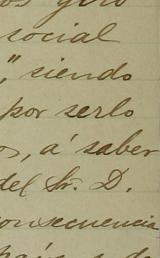 os giro
social
", siendo
por serlo
os, á saber
del Sr. D.
consecuencia